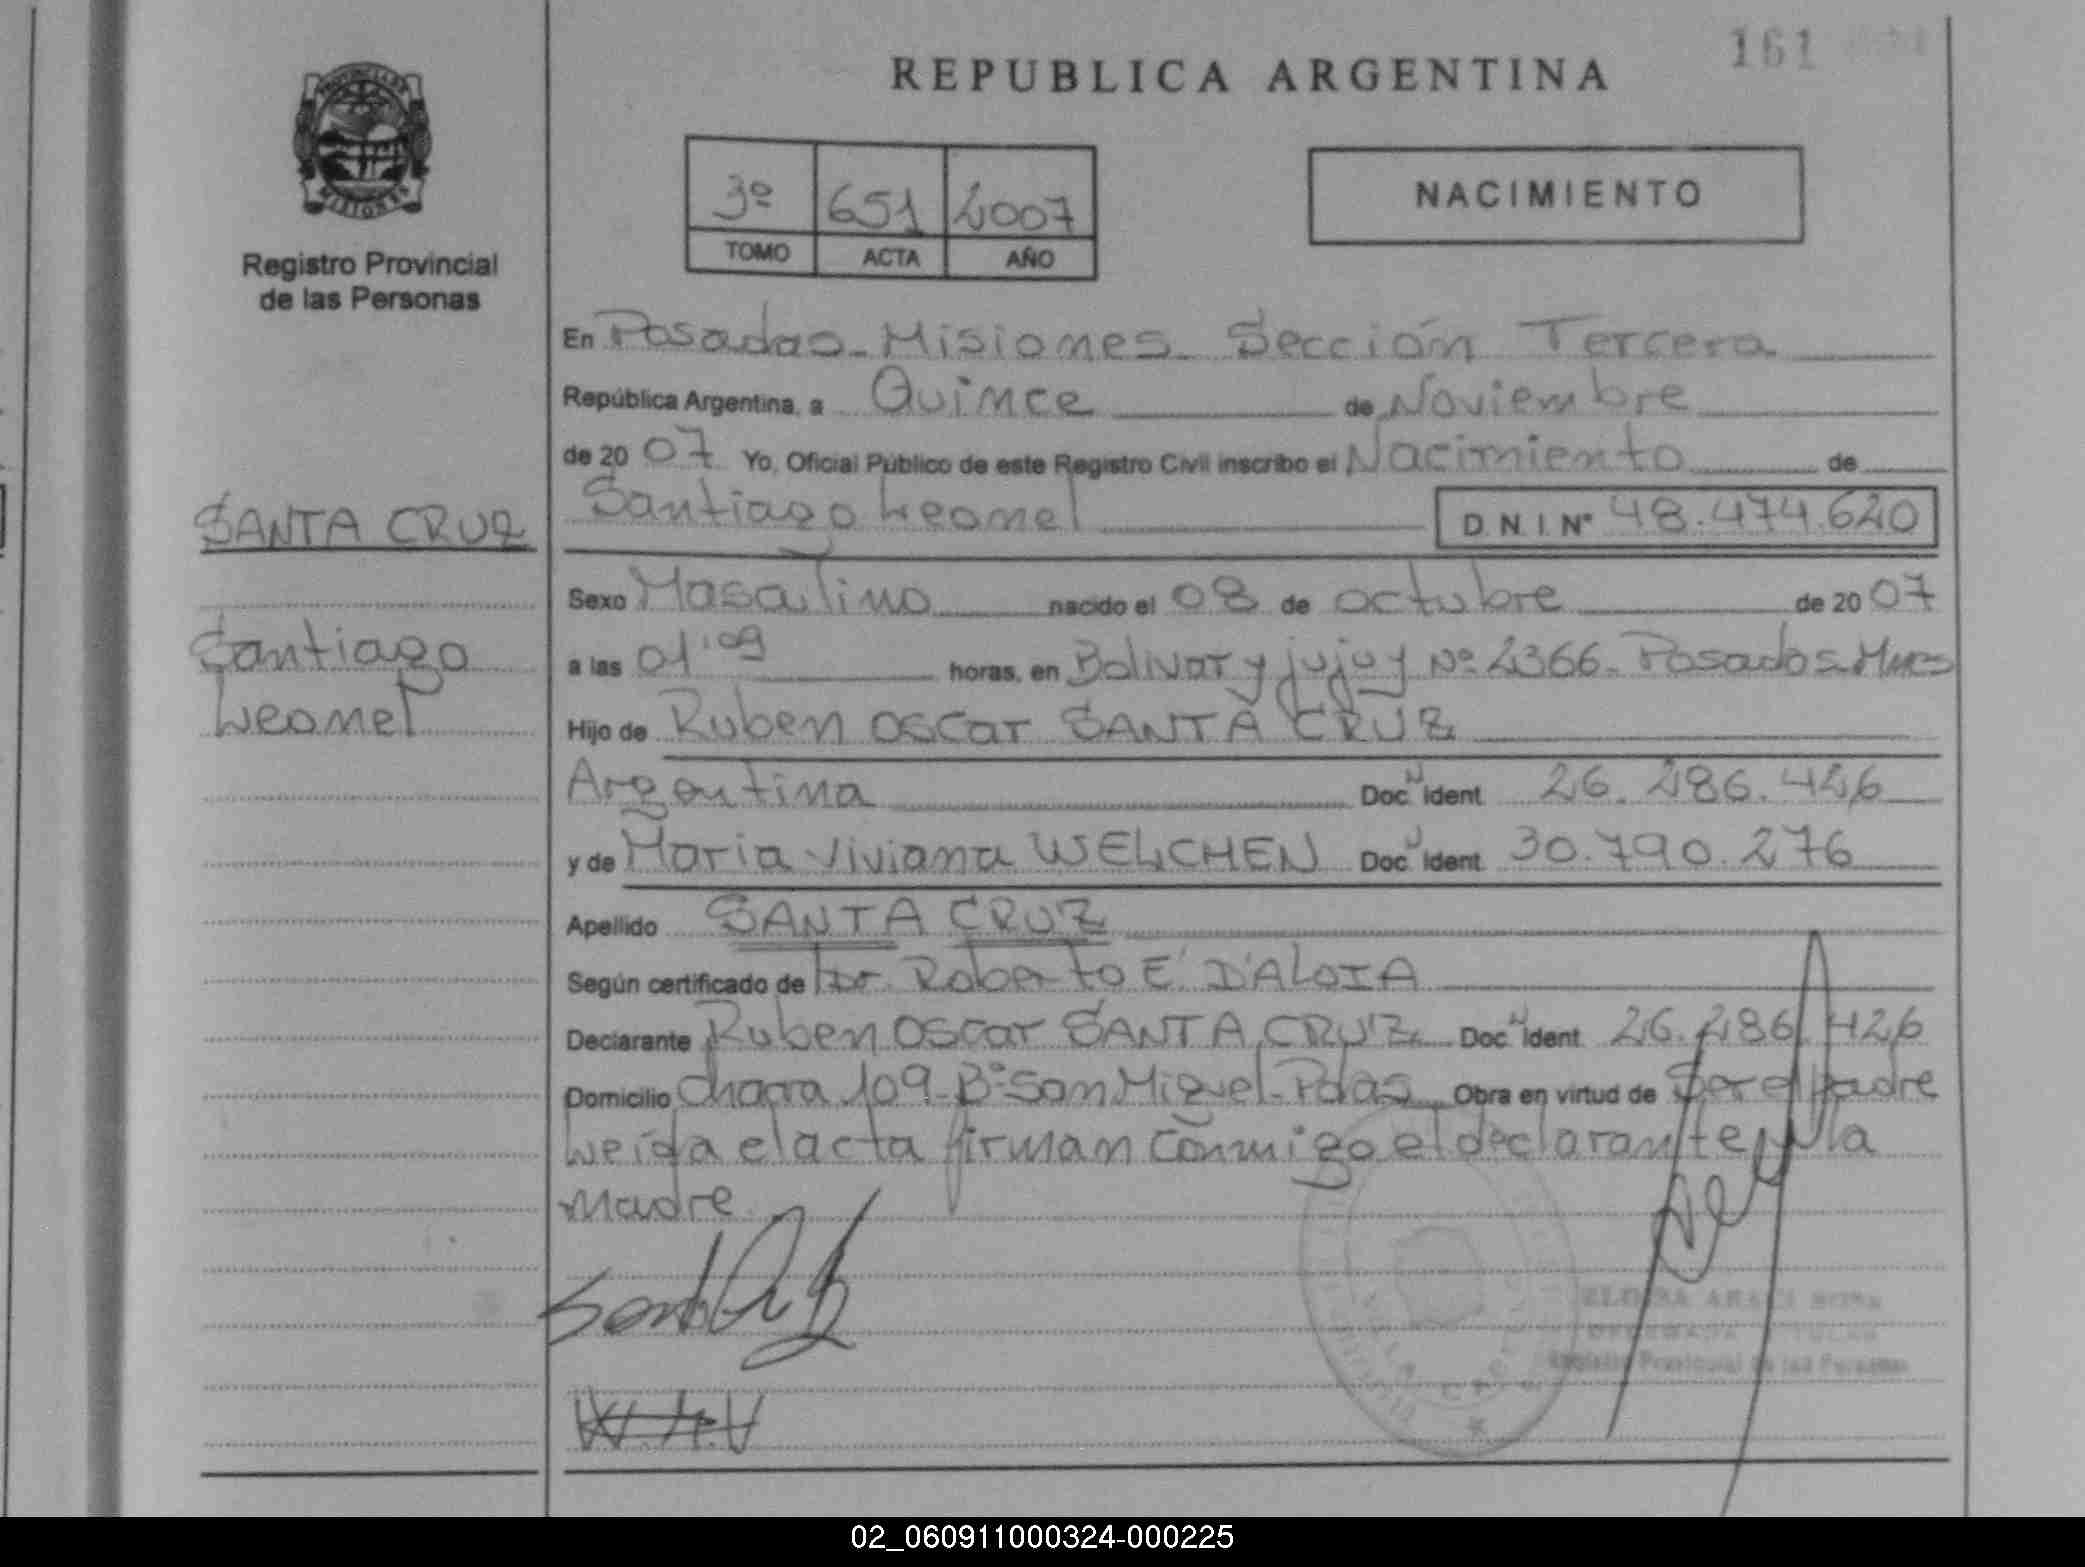 161
REPUBLICA ARGENTINA
PROVINCIA DE
MISIONES
Registro Provincial
de las Personas
3º 651 2007
TOMO ACTA AÑO
NACIMIENTO
En Posadas - Misiones - Sección Tercera
República Argentina, a Quince de Noviembre
de 20 07 Yo, Oficial Público de este Registro Civil inscribo el Nacimiento de
SANTA CRUZ
Santiago Leonel
Santiago Leonel D.N.I.Nº 48.474.620
Sexo Masculino nacido el 08 de octubre de 20 07
a las 01:09 horas, en Bolivar y jujuy Nº 2366 - Posadas - Mnes
Hijo de Ruben Oscar SANTA CRUZ
Argentina Doc. Ident 26.286.426
y de Maria Viviana WELCHEN Doc. Ident 30.790.276
Apellido SANTA CRUZ
Según certificado de Dr. Roberto E. D'ALOIA
Declarante Ruben Oscar SANTA CRUZ Doc. Ident 26.286.426
Domicilio Chacra 109 - Bº San Miguel - Pdas Obra en virtud de Ser el padre
Leída el acta firman conmigo el declarante y la
madre.
Registro Provincial de las Personas
02_060911000324-000225